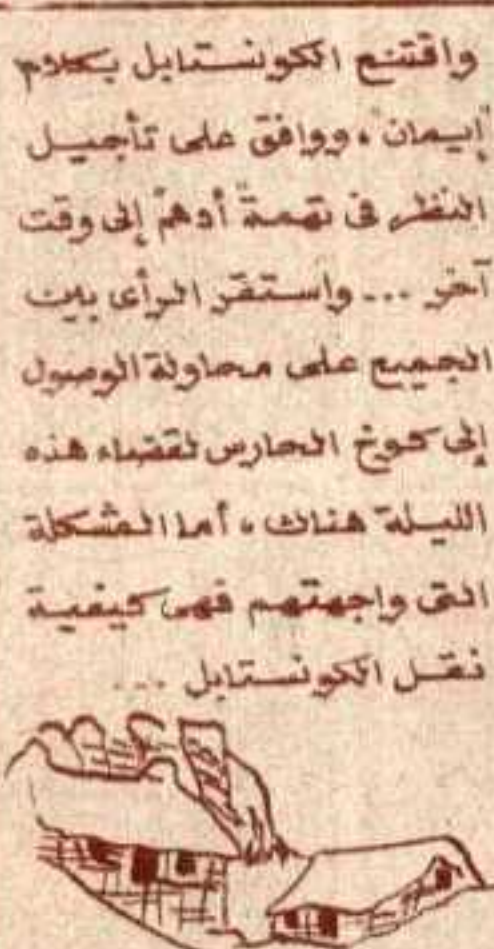 واقتنع الكونستابل بكلام
"إيمان"، ووافق على تأجيل
النظر فى تهمة "أدهم" إلى وقت
آخر ... واستقر الرأى بين
الجميع على محاولة الوصول
إلى كوخ الحارس لقضاء هذه
الليلة هناك، أما المشكلة
التى واجهتهم فهى كيفية
نقل الكونستابل ...